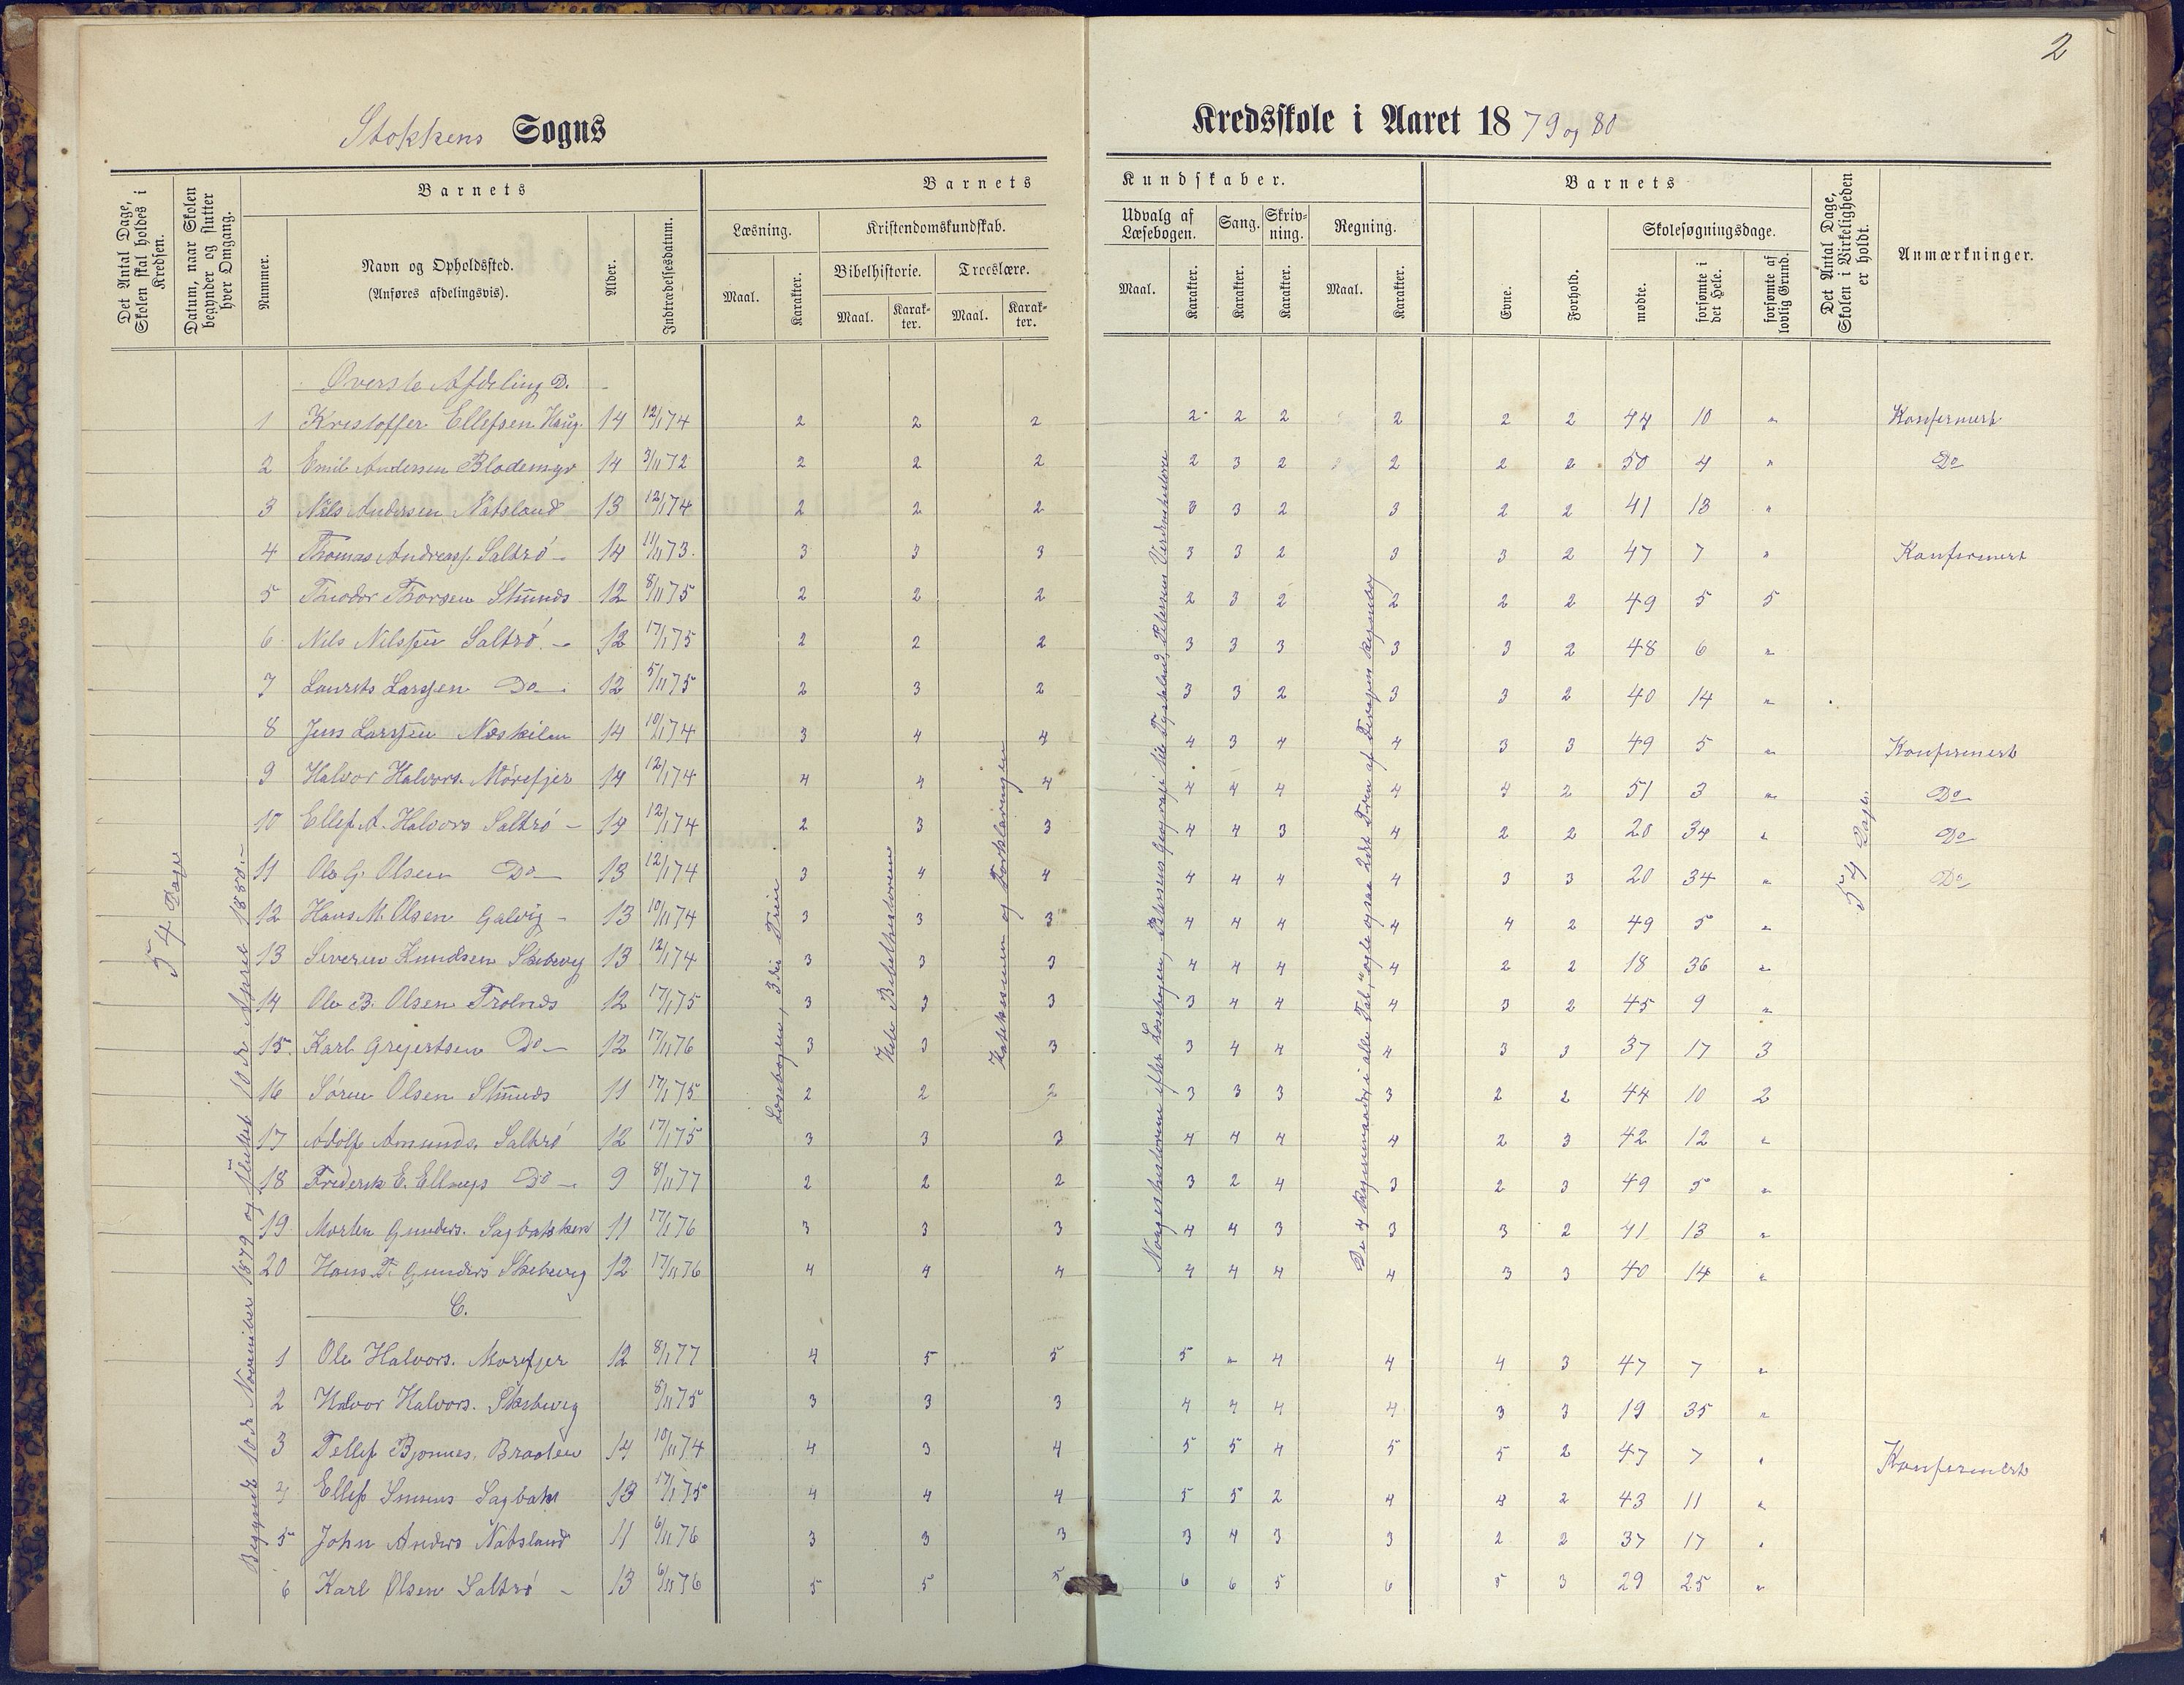 2
Stokkens Sogns
Kredsskole i Aaret 1879 og 80
Det Antal Dage, Skolen skal holdes i Kredsen.
Datum, naar Skolen begynder og slutter hver Omgang.
Barnets
Nummer.
Navn og Opholdssted.
(Anføres afdelingsvis).
Alder.
Indtrædelsesdatum.
Barnets Kundskaber.
Læsning.
Maal.
Karakter.
Kristendomskundskab.
Bibelhistorie.
Maal.
Karakter.
Troeslære.
Maal.
Karakter.
Udvalg af Læsebogen.
Maal.
Karakter.
Sang.
Karakter.
Skrivning.
Karakter.
Regning.
Maal.
Karakter.
Barnets
Evne.
Forhold.
Skolesøgningsdage.
mødte.
forsømte i det Hele.
forsømte af lovlig Grund.
Det Antal Dage, Skolen i Virkeligheden er holdt.
Anmærkninger.
54 Dage
Begyndt 10de November 1879 og sluttet 10de April 1880.-
Læsebogen, 3die Trin
Hele Bibelhistorien
Katekismen og Forklaringen
54 Dage.
Øverste Afdeling D.
1 Kristoffer Ellefsen Haug. 14 12/1 74 2 2 2 2 2 2 2 2 2 44 10 " Konfirmert
2 Emil Andersen Blodemyr 14 3/11 72 2 2 2 2 3 2 2 2 2 50 4 " Do
3 Nils Andersen Natsland 13 12/1 74 2 2 2 3 3 2 3 2 2 41 13 "
4 Thomas Andreass. Saltrø 14 11/11 73. 3 3 3 3 3 2 3 3 2 47 7 " Konfirmert
5 Theodor Thorsen Stunds 12 8/11 75 2 2 2 2 3 2 2 2 2 49 5 5
6 Nils Nilssen Saltrø 12 17/1 75 2 2 2 3 3 3 3 3 2 48 6 "
7 Laurits Larssen Do 12 5/11 75 2 3 2 3 3 2 3 3 2 40 14 "
8 Jens Larssen Næskilen 14 10/1 74 3 4 4 4 3 4 4 3 3 49 5 " Konfirmert
9 Halvor Halvors. Mørefjer 14 12/1 74 4 4 4 4 4 4 4 4 2 51 3 " Do
10 Ellef A. Halvors Saltrø 14 12/1 74 2 3 3 4 4 3 4 2 2 20 34 " Do
11 Ole G. Olsen Do 13 12/1 74 3 4 4 4 4 4 4 3 3 20 34 " Do
12 Hans M. Olsen Galvig 13 10/11 74 3 3 3 4 4 4 4 4 2 49 5 "
13 Severin Knudsen Skibevig 13 12/1 74 3 3 3 4 4 4 4 2 2 18 36 "
14 Ole B. Olsen Trolnes 12 17/1 75 3 3 3 3 4 4 4 3 2 45 9 "
15. Karl Grejertsen Do 12 17/11 76 3 3 3 3 4 4 4 3 3 37 17 3
16 Søren Olsen Stunds 11 17/1 75 2 2 2 3 3 3 3 2 2 44 10 2
17 Adolf Amunds. Saltrø 12 17/1 75 3 3 3 4 4 4 4 2 3 42 12 "
18 Frederik E. Do 9 8/1 77 2 2 2 3 2 4 3 2 3 49 5 "
19 Morten Gunders. Sagbakken 11 17/1 76 3 3 3 4 4 3 3 3 2 41 13 "
20 Hans T. Gunders Skibevig 12 17/11 76 4 4 4 4 4 4 4 3 3 40 14 "
C.
1 Ole Halvors. Morefjer 12 8/1 77 4 5 5 5 " 4 4 4 3 47 7 "
2 Halvor Halvors. Skibevig 8/11 75 3 3 3 4 4 4 4 3 3 19 35 "
3 Tellef Bjonnes. Braaten 14 10/11 74 4 3 4 5 5 4 5 5 2 47 7 " Konfirmert
4 Ellef Sagbak 13 17/1 75 4 4 4 5 5 2 4 4 2 43 11 "
5 John Anders Natsland 11 6/11 76 3 3 3 3 4 3 3 2 2 37 17 "
6 Karl Olsen Saltrø 13 6/11 76 5 5 5 6 6 5 6 5 3 29 25 "